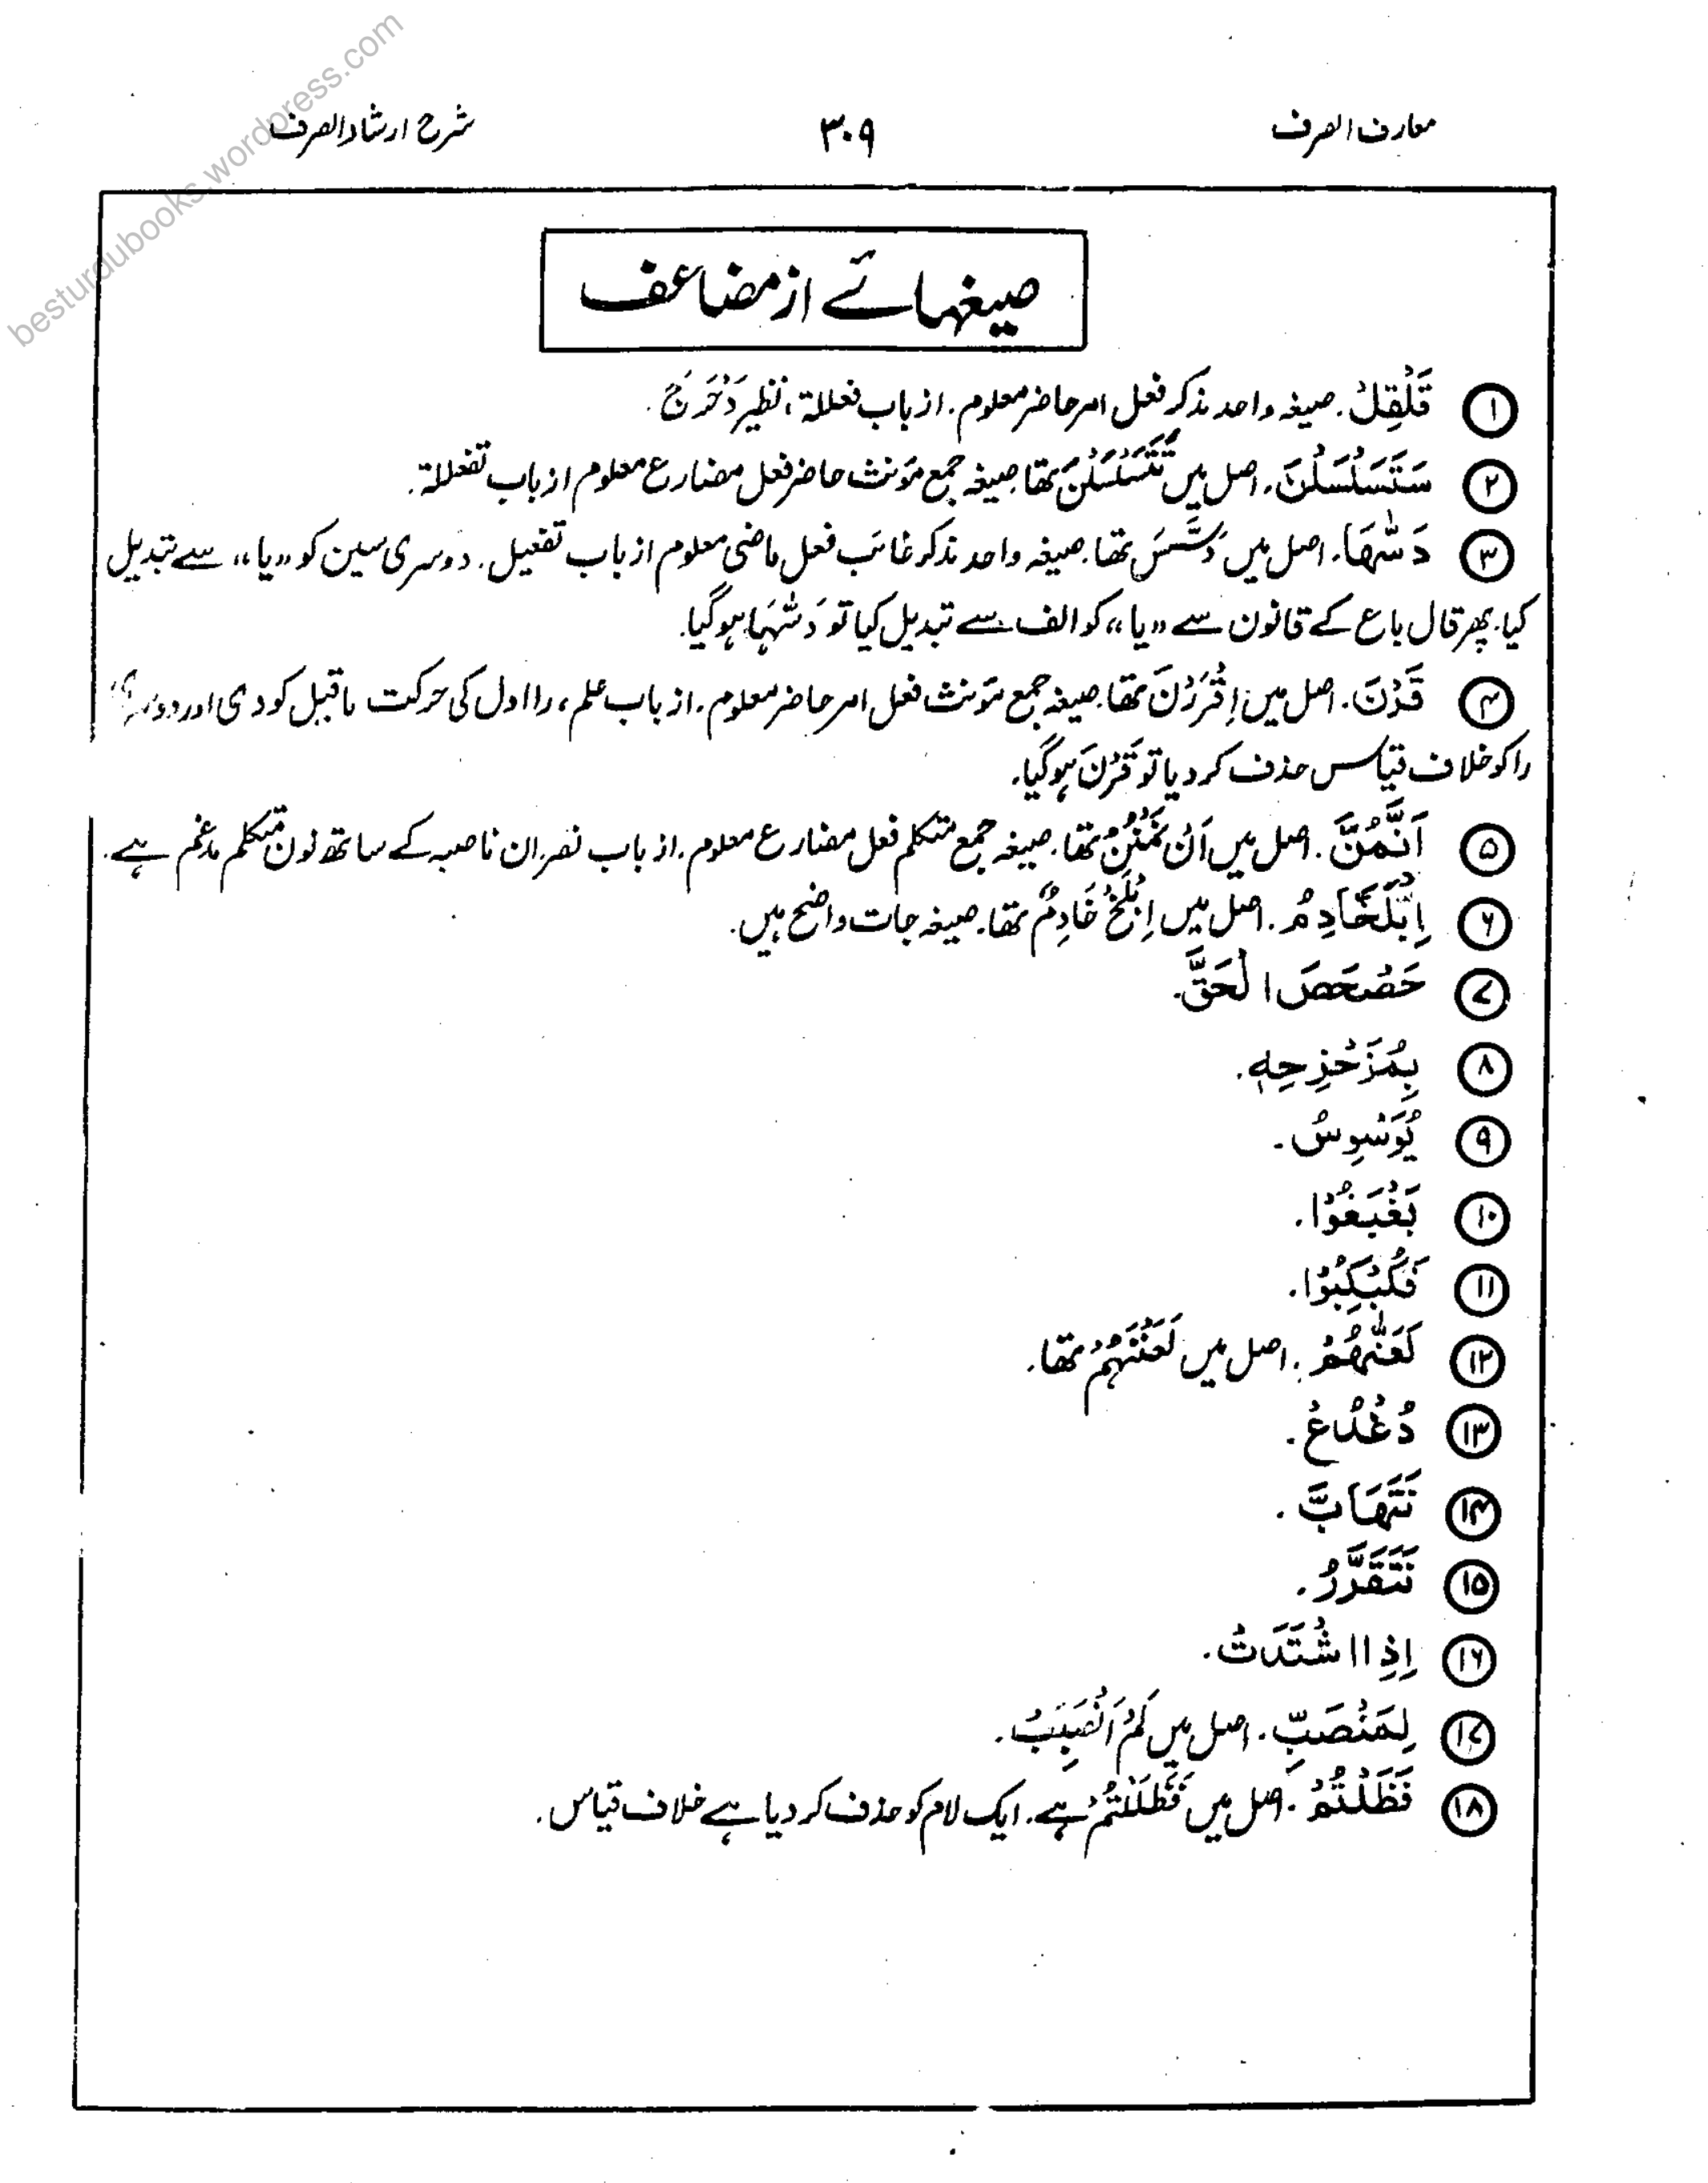 معارف الصرف
۳۰۹
شرح ارشاد الصرف
besturdubooks.wordpress.com
صیغہائے از مضاعف
① قَلْقِلْ. صیغہ واحد مذکر فعل امر حاضر معلوم. از باب فعللة، نظیر دَحْرِجْ.
② سَتَسَلْسَلْنَ. اصل میں تَتَسَلْسَلْنَ تھا. صیغہ جمع مؤنث حاضر فعل مضارع معلوم از باب تفعللة.
③ دَسّٰهَا. اصل میں دَسَّسَ تھا. صیغہ واحد مذکر غائب فعل ماضی معلوم از باب تفعیل. دوسری سین کو «یا» سے تبدیل
کیا. پھر قال باع کے قانون سے «یا» کو الف سے تبدیل کیا تو دَسّٰهَا ہو گیا.
④ قَرْنَ. اصل میں اِقْرَرْنَ تھا. صیغہ جمع مؤنث فعل امر حاضر معلوم. از باب علم، را اول کی حرکت ماقبل کو دی اور دوسری
را کو خلاف قیاس حذف کر دیا تو قَرْنَ ہو گیا.
⑤ اَنَّمُنَّ. اصل میں اَنْ نَمْنُنَ تھا. صیغہ جمع متکلم فعل مضارع معلوم. از باب نصر. ان ناصبہ کے ساتھ نون متکلم مدغم ہے.
⑥ اِبْلَخَّادِمُ. اصل میں اِبْلَخْ خَادِمُ تھا. صیغہ جات واضح ہیں.
⑦ حَصْحَصَ الْحَقَّ.
⑧ بِمُزَحْزِحِهٖ.
⑨ يُوَسْوِسُ.
⑩ بَغْبَغُوْا.
⑪ فَكُبْكِبُوْا.
⑫ لَعَنّٰهُمْ. اصل میں لَعَنْنَهُمْ تھا.
⑬ دُعْدُعْ.
⑭ نَتَهَابَّ.
⑮ نَتَقَرَّرُ.
⑯ اِذِ اشْتَدَتْ.
⑰ لِمَنْصَبِّ. اصل میں لَمْ اَنْصَبِبْ.
⑱ فَظَلْتُمْ. اصل میں فَظَلَلْتُمْ ہے. ایک لام کو حذف کر دیا ہے خلاف قیاس.